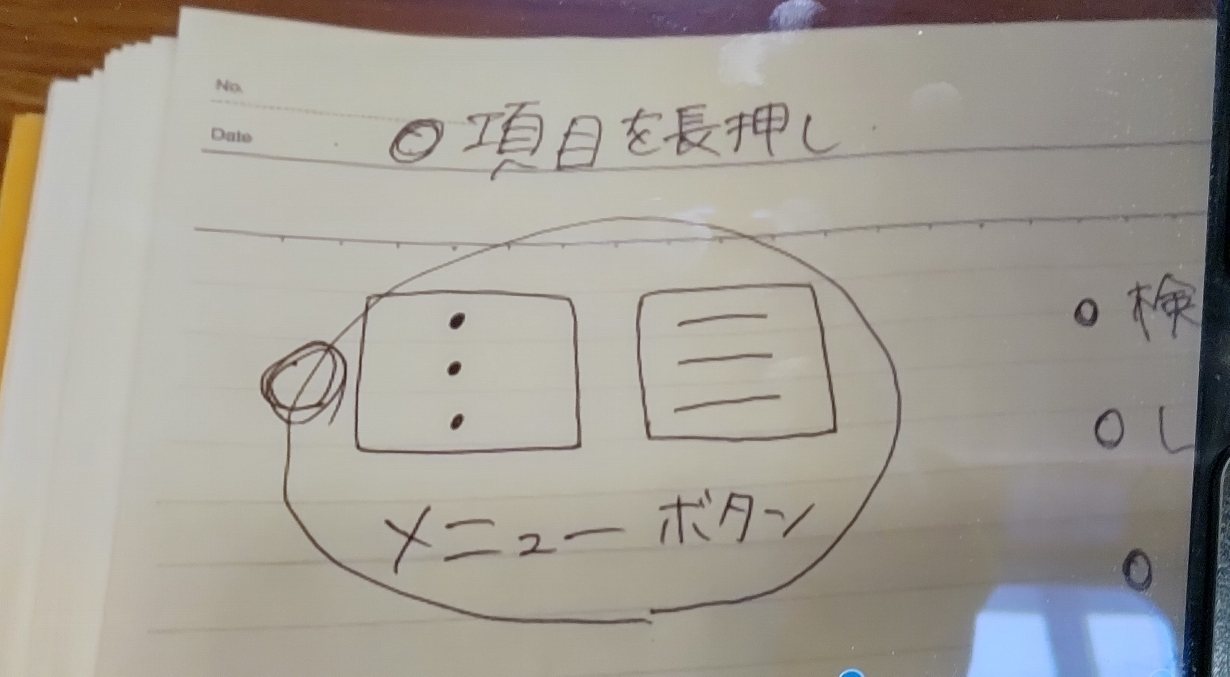 No.
Date
○ 項目を長押し
メニューボタン
○ 検
○ し
○